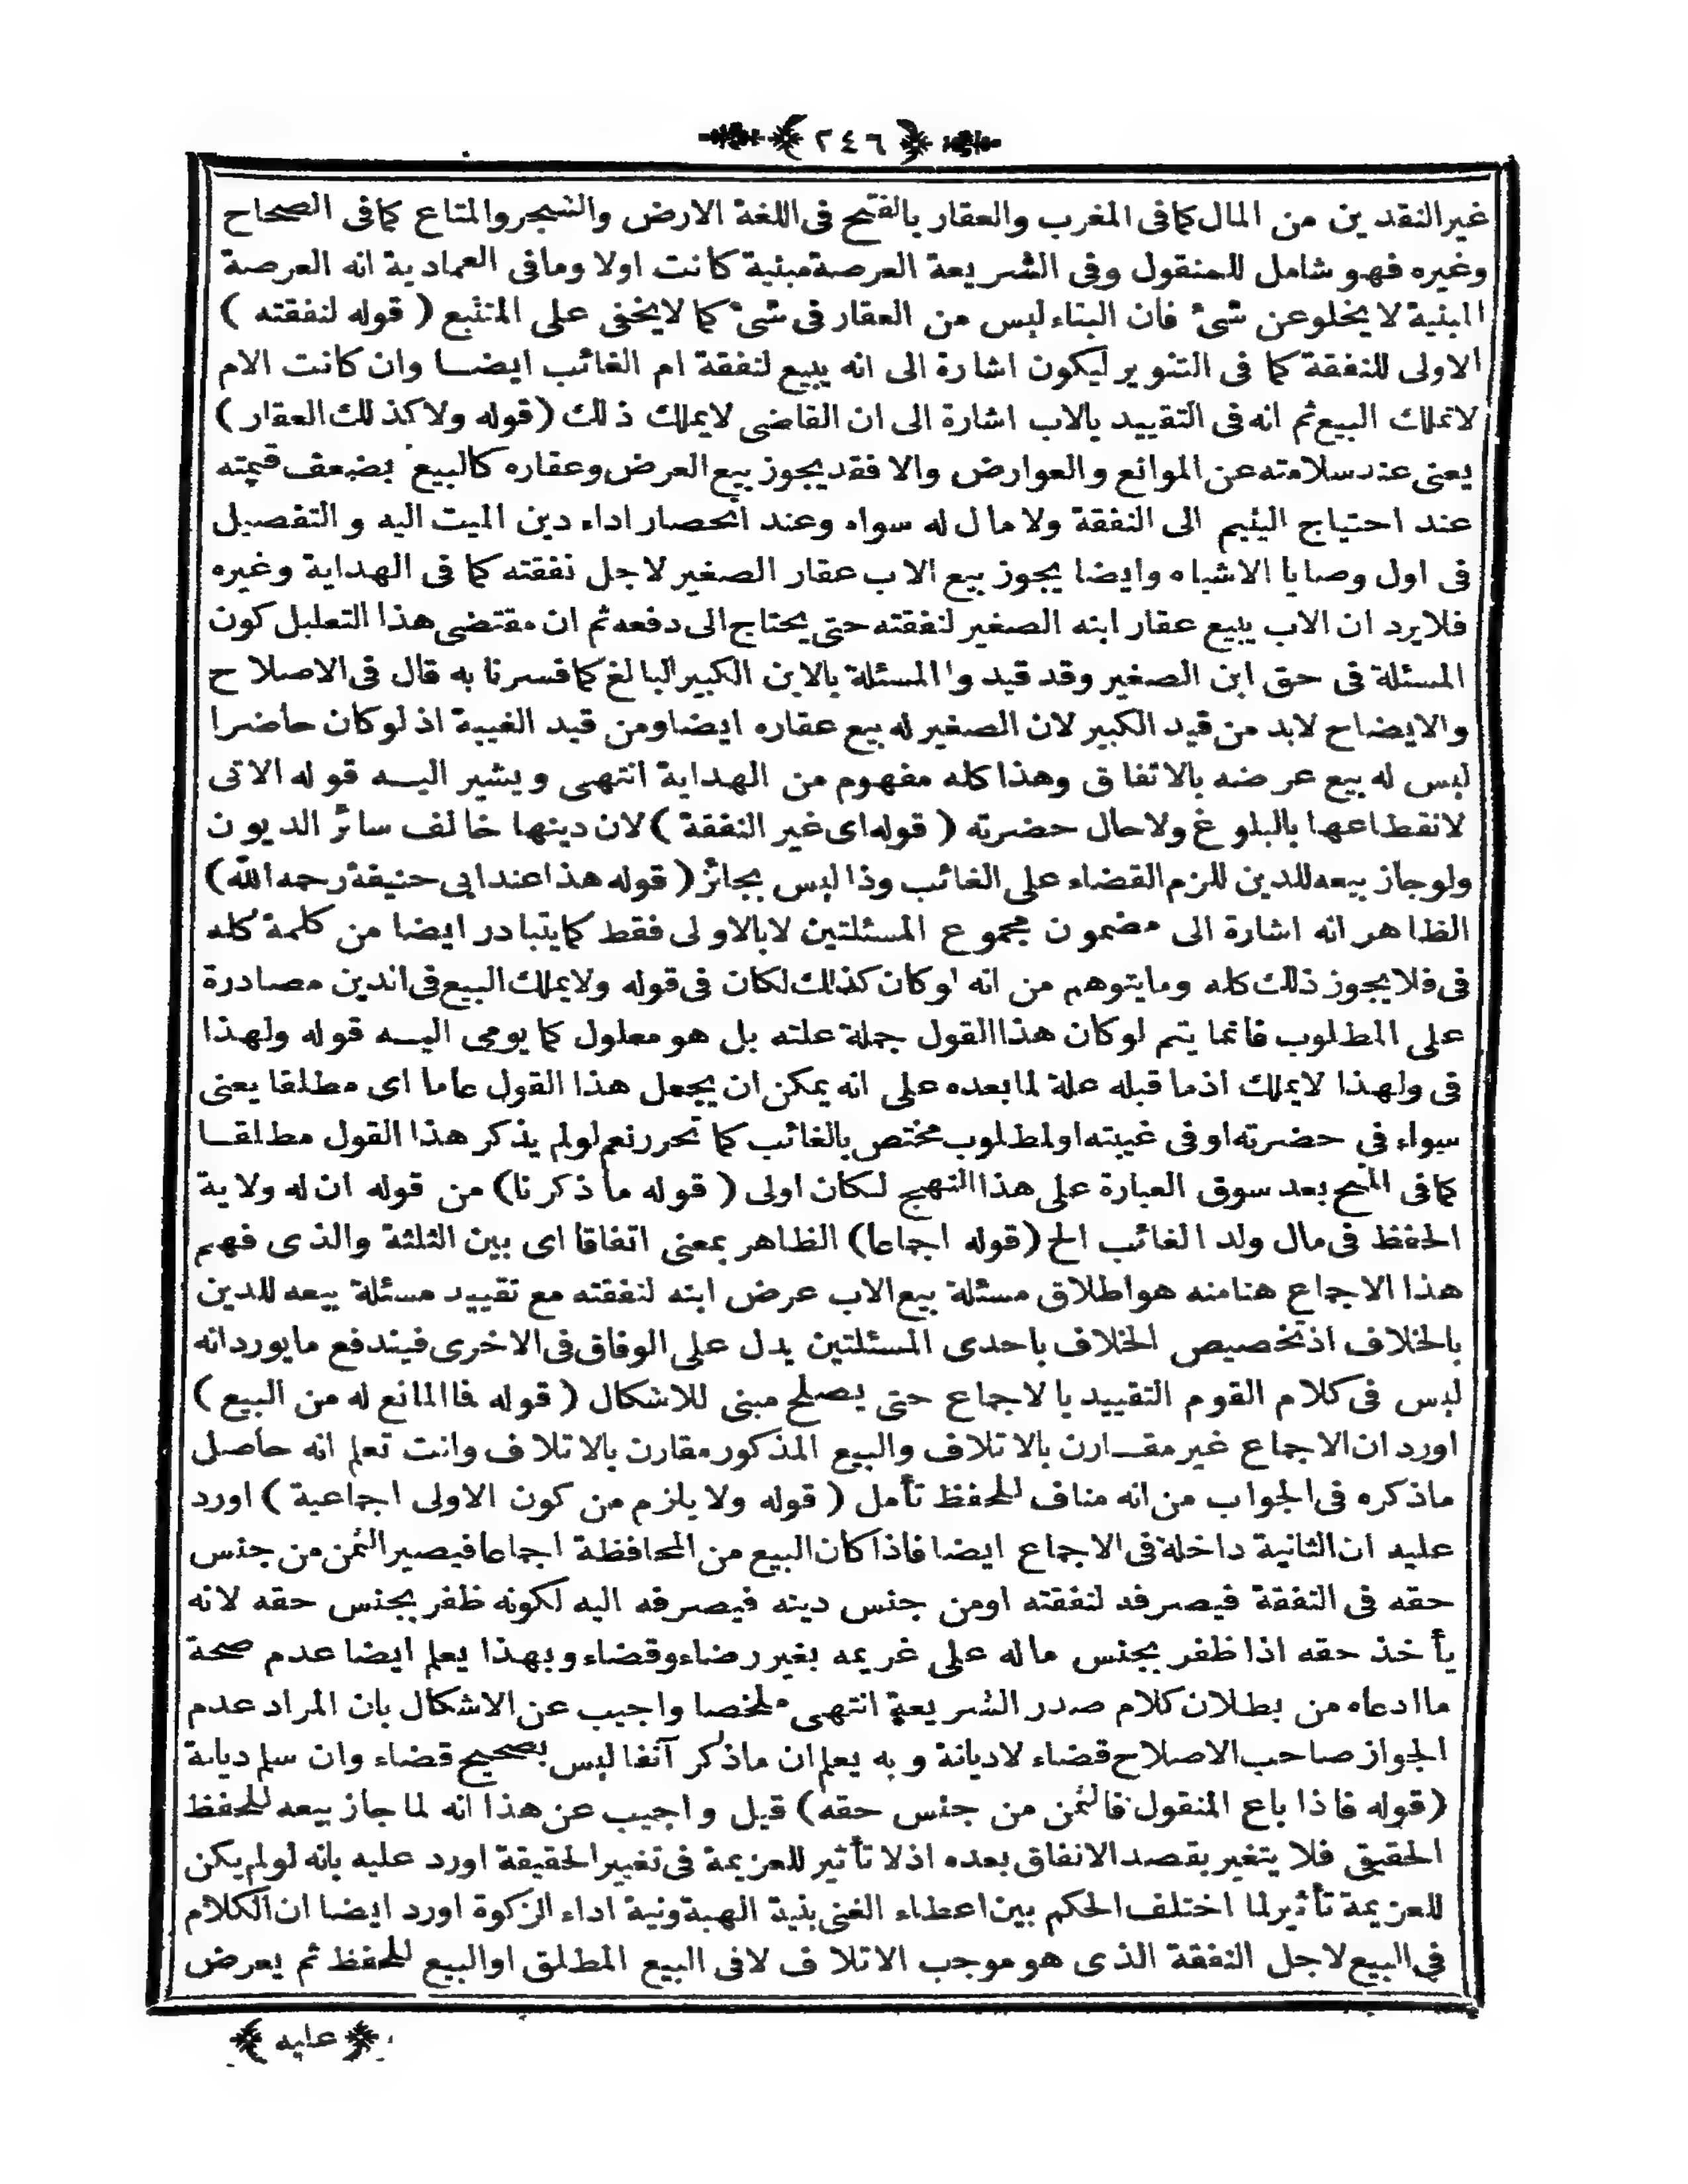 ﴿ ٢٤٦ ﴾
غير النقدين من المال كما فى المغرب والعقار بالفتح فى اللغة الارض والشجر والمتاع كما فى الصحاح
وغيره فهو شامل للمنقول وفى الشريعة العرصة مبنية كانت اولا وما فى العمادية انه العرصة
المبنية لا يخلو عن شئ فان البناء ليس من العقار فى شئ كما لا يخفى على المتتبع ( قوله لنفقته )
الاولى للنفقة كما فى التنوير ليكون اشارة الى انه يبيع لنفقة ام الغائب ايضا وان كانت الام
لا تملك البيع ثم انه فى التقييد بالاب اشارة الى ان القاضى لا يملك ذلك ( قوله ولا كذلك العقار )
يعنى عند سلامته عن الموانع والعوارض والا فقد يجوز بيع العرض وعقاره كالبيع بضعف قيمته
عند احتياج اليتيم الى النفقة ولا مال له سواه وعند انحصار اداء دين الميت اليه والتفصيل
فى اول وصايا الاشباه وايضا يجوز بيع الاب عقار الصغير لاجل نفقته كما فى الهداية وغيره
فلا يرد ان الاب يبيع عقار ابنه الصغير لنفقته حتى يحتاج الى دفعه ثم ان مقتضى هذا التعليل كون
المسئلة فى حق ابن الصغير وقد قيدوا المسئلة بالابن الكبير البالغ كما فسرنا به قال فى الاصلاح
والايضاح لابد من قيد الكبير لان الصغير له بيع عقاره ايضا ومن قيد الغيبة اذ لو كان حاضرا
ليس له بيع عرضه بالاتفاق وهذا كله مفهوم من الهداية انتهى ويشير اليه قوله الاتى
لانقطاعها بالبلوغ ولا حال حضرته ( قوله اى غير النفقة ) لان دينها خالف سائر الديون
ولو جاز بيعه للدين للزم القضاء على الغائب وذا ليس بجائز ( قوله هذا عند ابى حنيفة رحمه الله )
الظاهر انه اشارة الى مضمون مجموع المسئلتين لا بالاولى فقط كما يتبادر ايضا من كلمة كله
فى فلا يجوز ذلك كله وما يتوهم من انه لو كان كذلك لكان فى قوله ولا يملك البيع فى اندين مصادرة
على المطلوب فانما يتم لو كان هذا القول جملة علته بل هو معلول كما يومى اليه قوله ولهذا
فى ولهذا لا يملك اذ ما قبله علة لما بعده على انه يمكن ان يجعل هذا القول عاما اى مطلقا يعنى
سواء فى حضرته او فى غيبته او لمطلوب مختص بالغائب كما تحرر نعم لو لم يذكر هذا القول مطلقا
كما فى المنح بعد سوق العبارة على هذا النهج لكان اولى ( قوله ما ذكرنا ) من قوله ان له ولاية
الحفظ فى مال ولد الغائب الخ ( قوله اجماعا ) الظاهر بمعنى اتفاقا اى بين الثلثة والذى فهم
هذا الاجماع هنا منه هو اطلاق مسئلة بيع الاب عرض ابنه لنفقته مع تقييد مسئلة بيعه للدين
بالخلاف اذ تخصيص الخلاف باحدى المسئلتين يدل على الوفاق فى الاخرى فيندفع ما يورد انه
ليس فى كلام القوم التقييد بالاجماع حتى يصلح مبنى للاشكال ( قوله فما المانع له من البيع )
اورد ان الاجماع غير مقارن بالاتلاف والبيع المذكور مقارن بالاتلاف وانت تعلم انه حاصل
ما ذكره فى الجواب من انه مناف للحفظ تأمل ( قوله ولا يلزم من كون الاولى اجماعية ) اورد
عليه ان الثانية داخلة فى الاجماع ايضا فاذا كان البيع من المحافظة اجماعا فيصير الثمن من جنس
حقه فى النفقة فيصرفه لنفقته او من جنس دينه فيصرفه اليه لكونه ظفر بجنس حقه لانه
يأخذ حقه اذا ظفر بجنس ماله على غريمه بغير رضاء وقضاء وبهذا يعلم ايضا عدم صحة
ما ادعاه من بطلان كلام صدر الشريعة انتهى ملخصا واجيب عن الاشكال بان المراد عدم
الجواز صاحب الاصلاح قضاء لا ديانة وبه يعلم ان ما ذكر آنفا ليس بصحيح قضاء وان سلم ديانة
( قوله فاذا باع المنقول فالثمن من جنس حقه ) قيل واجيب عن هذا انه لما جاز بيعه للحفظ
الحقيقى فلا يتغير بقصد الانفاق بعده اذ لا تأثير للعزيمة فى تغيير الحقيقة اورد عليه بانه لو لم يكن
للعزيمة تأثير لما اختلف الحكم بين اعطاء الغنى بنية الهبة ونية اداء الزكوة اورد ايضا ان الكلام
فى البيع لاجل النفقة الذى هو موجب الاتلاف لا فى البيع المطلق او البيع للحفظ ثم يعرض
﴿ عليه ﴾